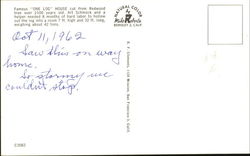 Famous "ONE LOG" HOUSE cut from Redwood
tree over 2100 years old. Art Schmock and a
helper needed 8 months of hard labor to hollow
out the log into a room 7 ft. high and 32 ft. long,
weighing about 42 tons.
NATURAL COLOR
Mike Roberts
BERKELEY 2, CALIF
Oct 11, 1962
Saw this on way
home.
So stormy we
couldn't stop.
C3062